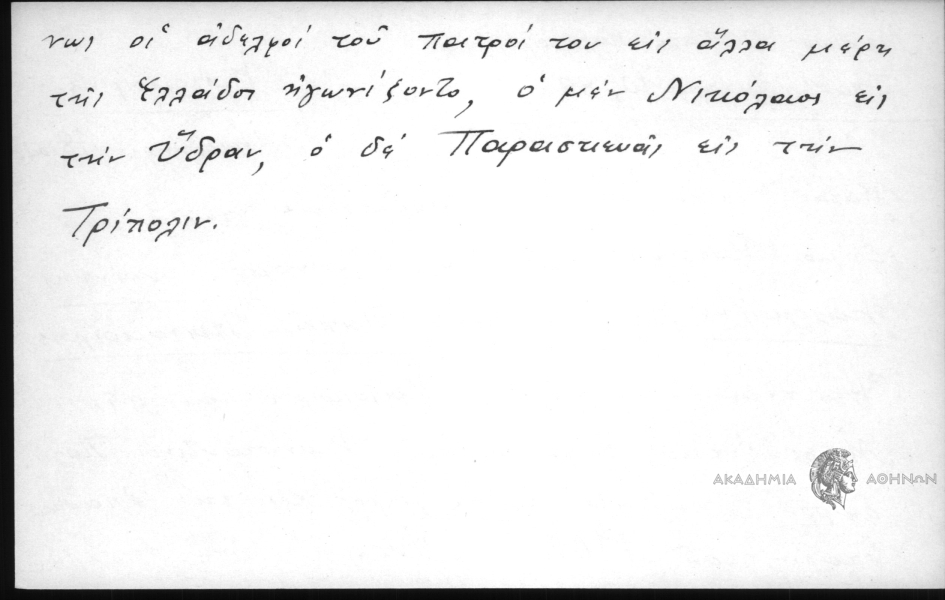 νως οἱ ἀδελφοί τοῦ πατρός του εἰς ἄλλα μέρη
τῆς Ἑλλάδος ἠγωνίζοντο, ὁ μέν Νικόλαος εἰς
τήν Ὕδραν, ὁ δέ Παρασκευᾶς εἰς τήν
Τρίπολιν.
ΑΚΑΔΗΜΙΑ ΑΘΗΝΩΝ